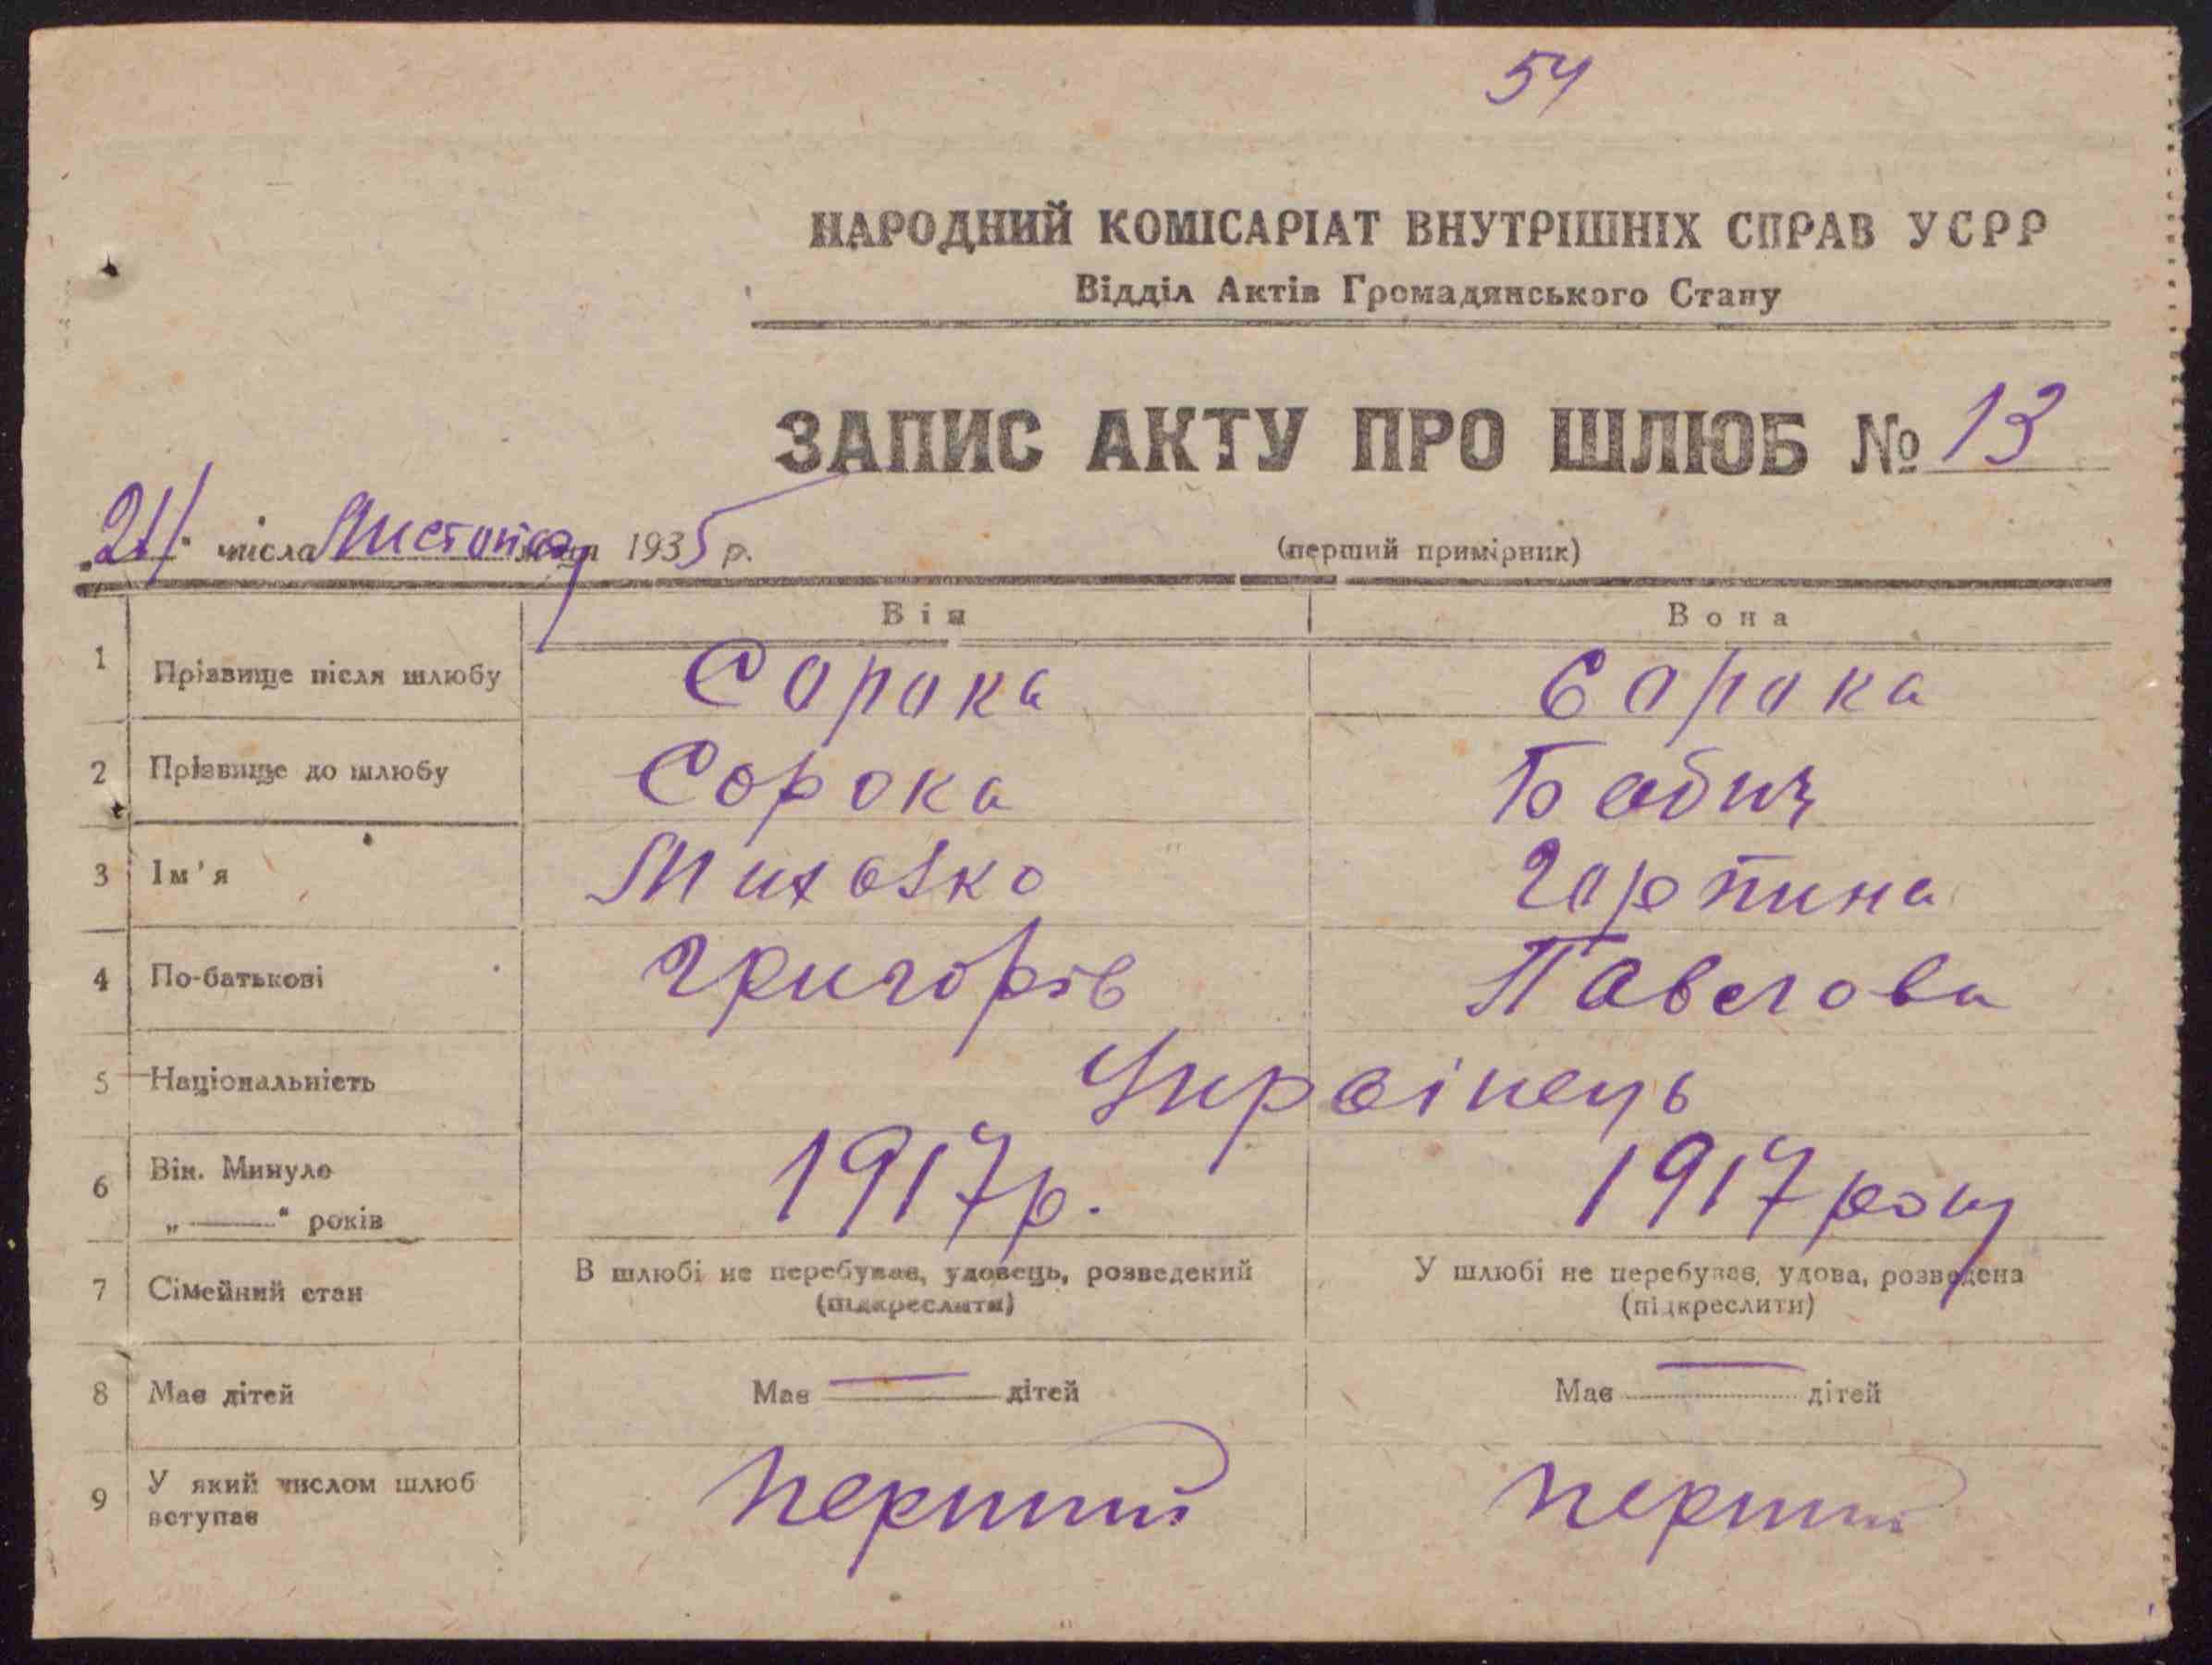 54
НАРОДНИЙ КОМІСАРІАТ ВНУТРІШНІХ СПРАВ УСРР
Відділ Актів Громадянського Стану
ЗАПИС АКТУ ПРО ШЛЮБ № 13
числа Листопад 1935 р.
(перший примірник)
Він Вона
1 Прізвище після шлюбу Сорока Сорока
2 Прізвище до шлюбу Сорока Бабич
3 Ім'я Михайко Горпина
4 По-батькові Григорів Павлова
5 Національність Українець
6 Вік. Минуло 1917р. 1917 року
„ — “ років
7 Сімейний стан В шлюбі не перебував, удовець, розведений У шлюбі не перебував, удова, розведена
(підкреслити) (підкреслити)
8 Має дітей Має — дітей Має — дітей
9 У який числом шлюб Перший Перший
вступає